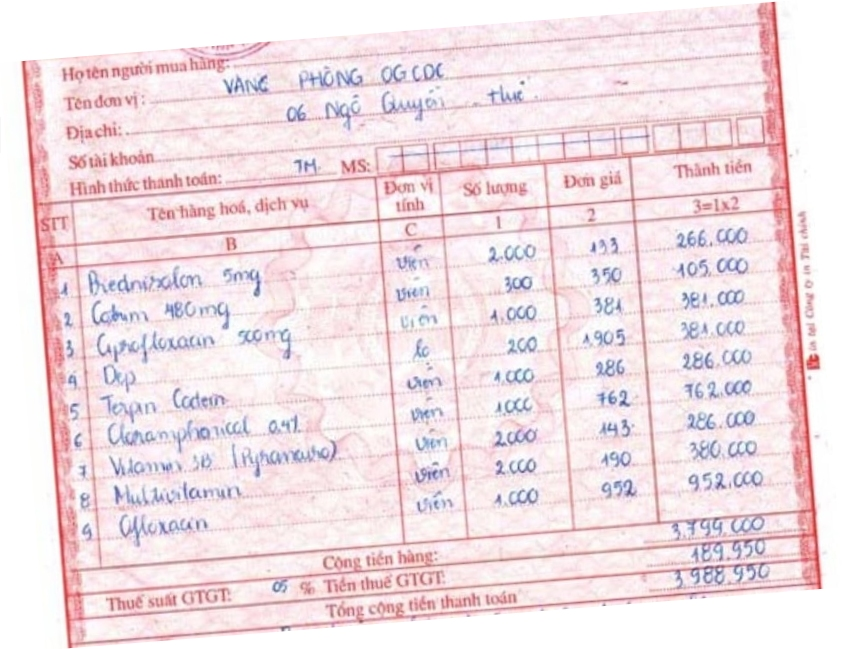 Họ tên người mua hàng:
Tên đơn vị: VĂNG PHÒNG OGCDC
Địa chỉ: 06 Ngô Quyền Huế
Số tài khoản
Hình thức thanh toán: TM. MS:
STT Tên hàng hoá, dịch vụ Đơn vị tính Số lượng Đơn giá Thành tiền
A B C 1 2 3=1x2
1 Prednisalon 5mg viên 2.000 133 266.000
2 Cotrim 480mg viên 300 350 105.000
3 Cyprofloxacin 500mg viên 1.000 381 381.000
4 Dep lo 200 1.905 381.000
5 Terpin Codein viên 1.000 286 286.000
6 Cloramphonical 0.4% viên 1000 762 762.000
7 Vitamin 3B viên 2000 143 286.000
8 Multivitamin viên 2.000 190 380.000
9 Ofloxacin viên 1.000 952 952.000
Cộng tiền hàng: 3.799.000
Thuế suất GTGT: 05 % Tiền thuế GTGT: 189.950
Tổng cộng tiền thanh toán 3.988.950
in tại Công ty in Tài chính